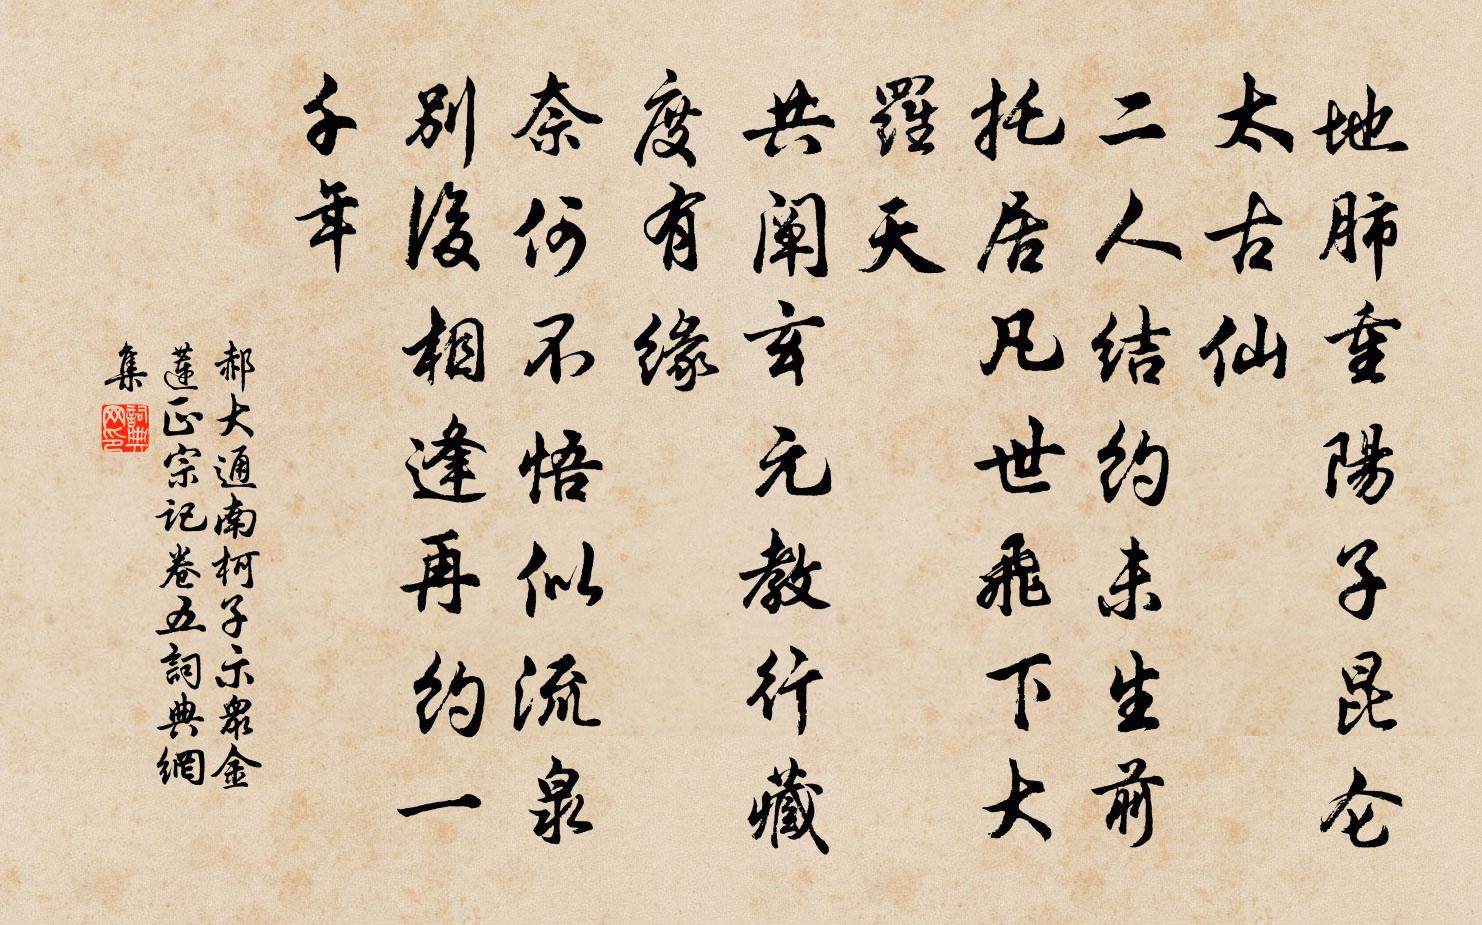 地肺重陽子昆仑
太古仙
二人结约未生前
托居凡世飛下大
羅天
共阐玄元教行藏
度有缘
奈何不悟似流泉
别後相逢再约一
千年
郝大通南柯子示眾金
蓮正宗记卷五詞典網
集
詞典
网印